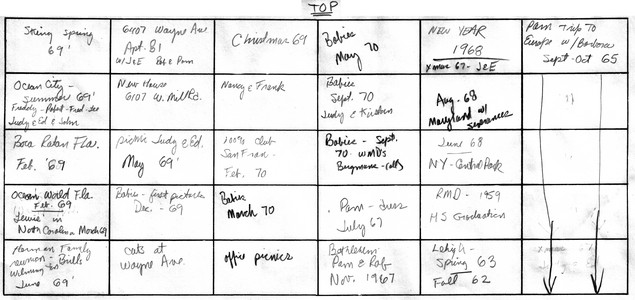 TOP
Skiing Spring
69'
6407 Wayne Ave
Apt. 81
w/J&E Bob & Pam
Christmas 69
Babies
May 70
NEW YEAR
1968
Xmas 67 - J&E
Pam Trip TO
Europe w/ Barbara
Sept-Oct 65
Ocean City -
Summer 69'
Judy & Ed & John
New House
6107 W. Mill Rd.
Nancy & Frank
Babies
Sept. 70
Judy & Kirsten
Aug. 68
Maryland w/
"
Boca Raton Fla.
Feb. '69
picnic Judy & Ed.
May 69'
100% Club
San Fran.
Feb. 70
Babies - Sept.
70 - WMD's
June 68
NY - Central Park
Ocean World Fla
Feb. 69
Lewis in
North Carolina March 69
Babies - first pictures
Dec. - 69
Babies
March 70
Pam -
July 67
RMD - 1959
HS Graduation
Family
reunion -
June 69'
cats at
Wayne Ave.
office picnics
Bethlehem
Pam & Rob
Nov. 1967
Lehigh -
Spring 63
Fall 62